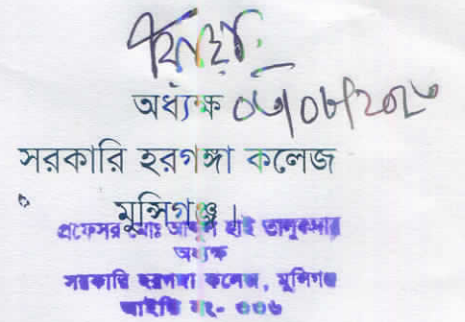 অধ্যক্ষ
সরকারি হরগঙ্গা কলেজ
মুন্সিগঞ্জ।
প্রফেসর মোঃ আব্দুল হাই তালুকদার
অধ্যক্ষ
সরকারি হরগঙ্গা কলেজ, মুন্সিগঞ্জ
আইডি নং- ০০৬